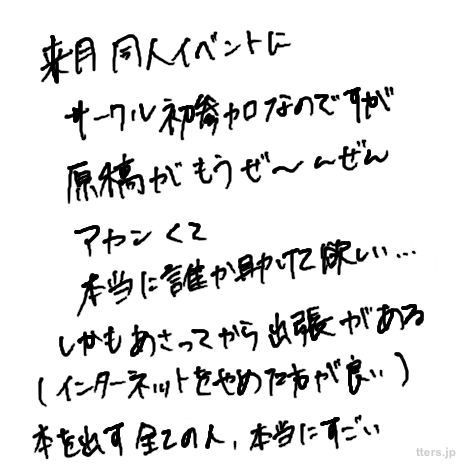 来月 同人イベントに
サークル初参加なのですが
原稿がもうぜ〜んぜん
アカンくて
本当に誰か助けて欲しい…
しかもあさってから出張がある
(インターネットをやめた方が良い)
本を出す全ての人、本当にすごい
tters.jp